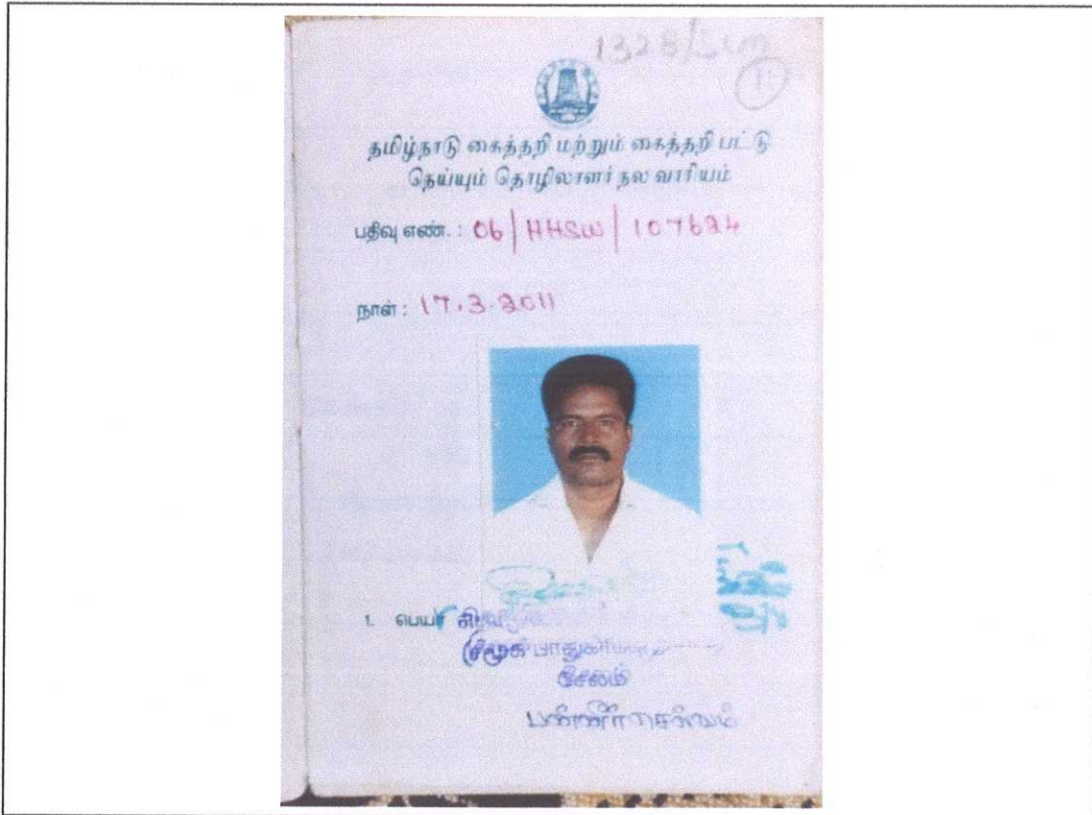 1328/
1
தமிழ்நாடு கைத்தறி மற்றும் கைத்தறி பட்டு
நெய்யும் தொழிலாளர் நல வாரியம்
பதிவு எண். : 06/HHSW/107624
நாள் : 17.3.2011
1. பெயர்
சேலம்
பன்னீர்செல்வம்